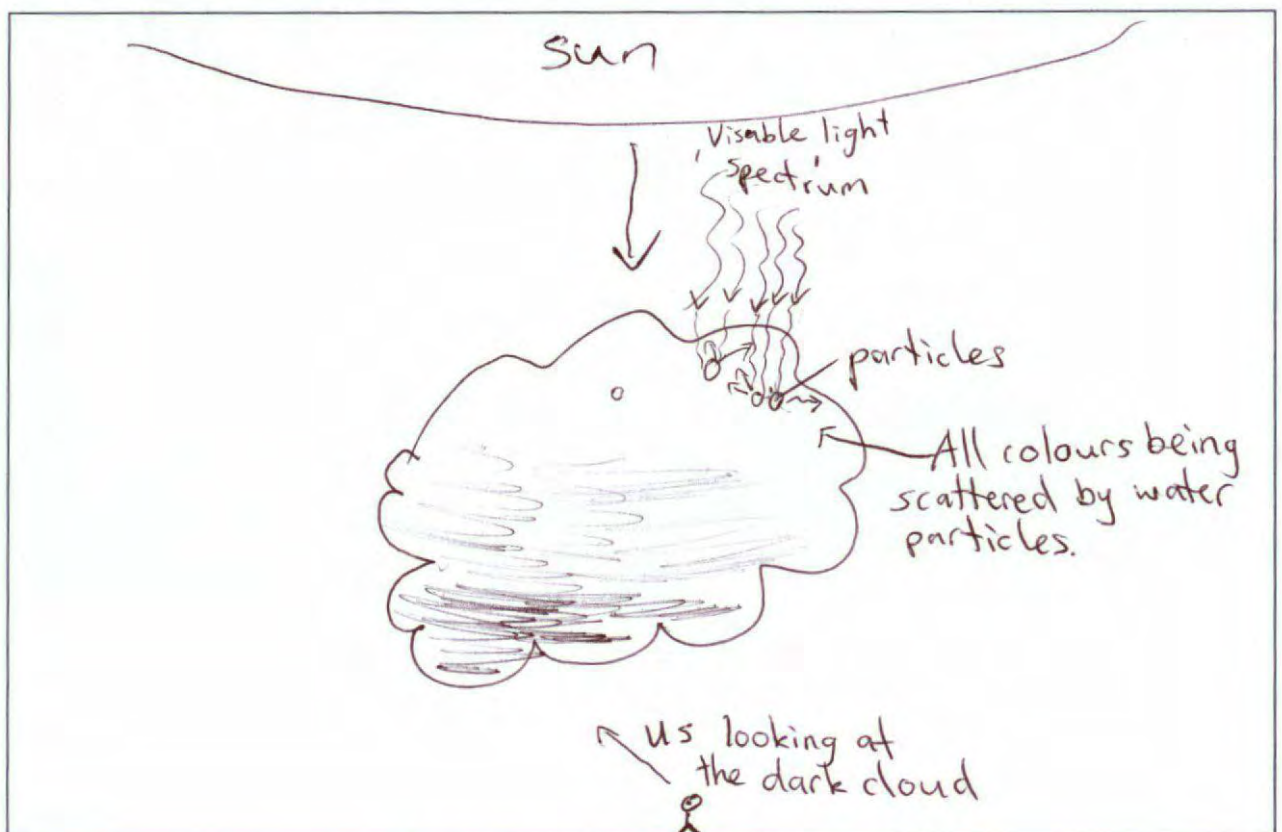 sun
Visable light
spectrum
particles
All colours being
scattered by water
particles.
us looking at
the dark cloud